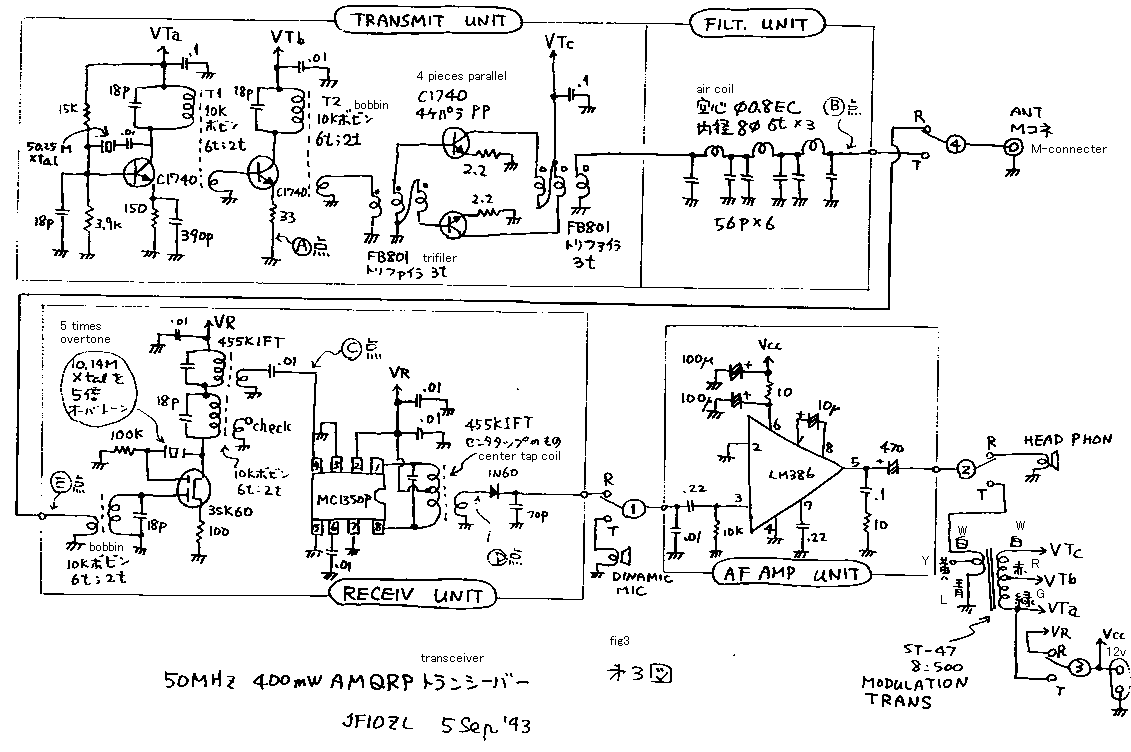 TRANSMIT UNIT
FILT. UNIT
VTa
VTb
VTc
.1
.01
.1
18P
T1
10K
ボビン
6t:2t
18P
T2 bobbin
10Kボビン
6t:2t
4 pieces parallel
C1740
4ケパラ PP
air coil
空心 Φ0.8EC
内径 8Φ 6t×3
Ⓑ点
15K
.01
5025M
Xtal
C1740
C1740
2.2
2.2
18P
3.9K
150
390P
33
Ⓐ点
FB801 trifiler
トリファイラ 3t
FB801
トリファイラ
3t
56P×6
R
T
④
ANT
Mコネ
M-connecter
5 times
overtone
10.14M
Xtalを
5倍
オーバトーン
.01
VR
455KIFT
.01
Ⓒ点
18P
check
100K
10Kボビン
6t:2t
3SK60
100
Ⓔ点
18P
bobbin
10Kボビン
6t:2t
VR
.01
.01
455KIFT
センタタップのもの
center tap coil
4 3 2 1
MC1350P
5 6 7 8
.01
1N60
70P
Ⓓ点
RECEIV UNIT
R
T
①
DINAMIC
MIC
Vcc
100μ
100μ
10
10μ
6
2
8
LM386
5
3
4
7
.22
.01
10K
.22
470
.1
10
AF AMP UNIT
②
R
T
HEAD PHON
W
白
W
白
Y
L
青
赤
R
緑
G
VTc
VTb
VTa
VR
R
T
③
Vcc
12v
ST-47
8:500
MODULATION
TRANS
fig3
オ3図
transceiver
50MHz 400mW AMQRP トランシーバー
JF1OZL 5 Sep '93